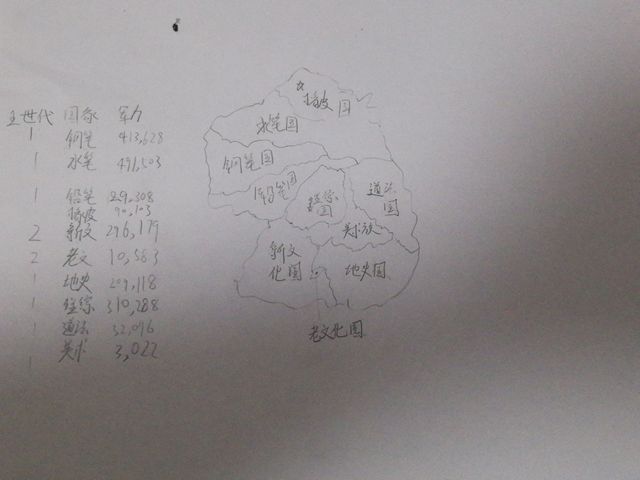 主世代 国家 军力
1 钢笔 413,628
1 水笔 491,503
1 铅笔 29,308
擦皮 90,103
2 新文 296,179
2 老文 10,583
1 地史 209,118
1 经综 310,288
1 道法 32,096
1 美术 3,022
擦皮国
水笔国
钢笔国
铅笔国
经综国
道法国
美术族
新文化国
地史国
老文化国